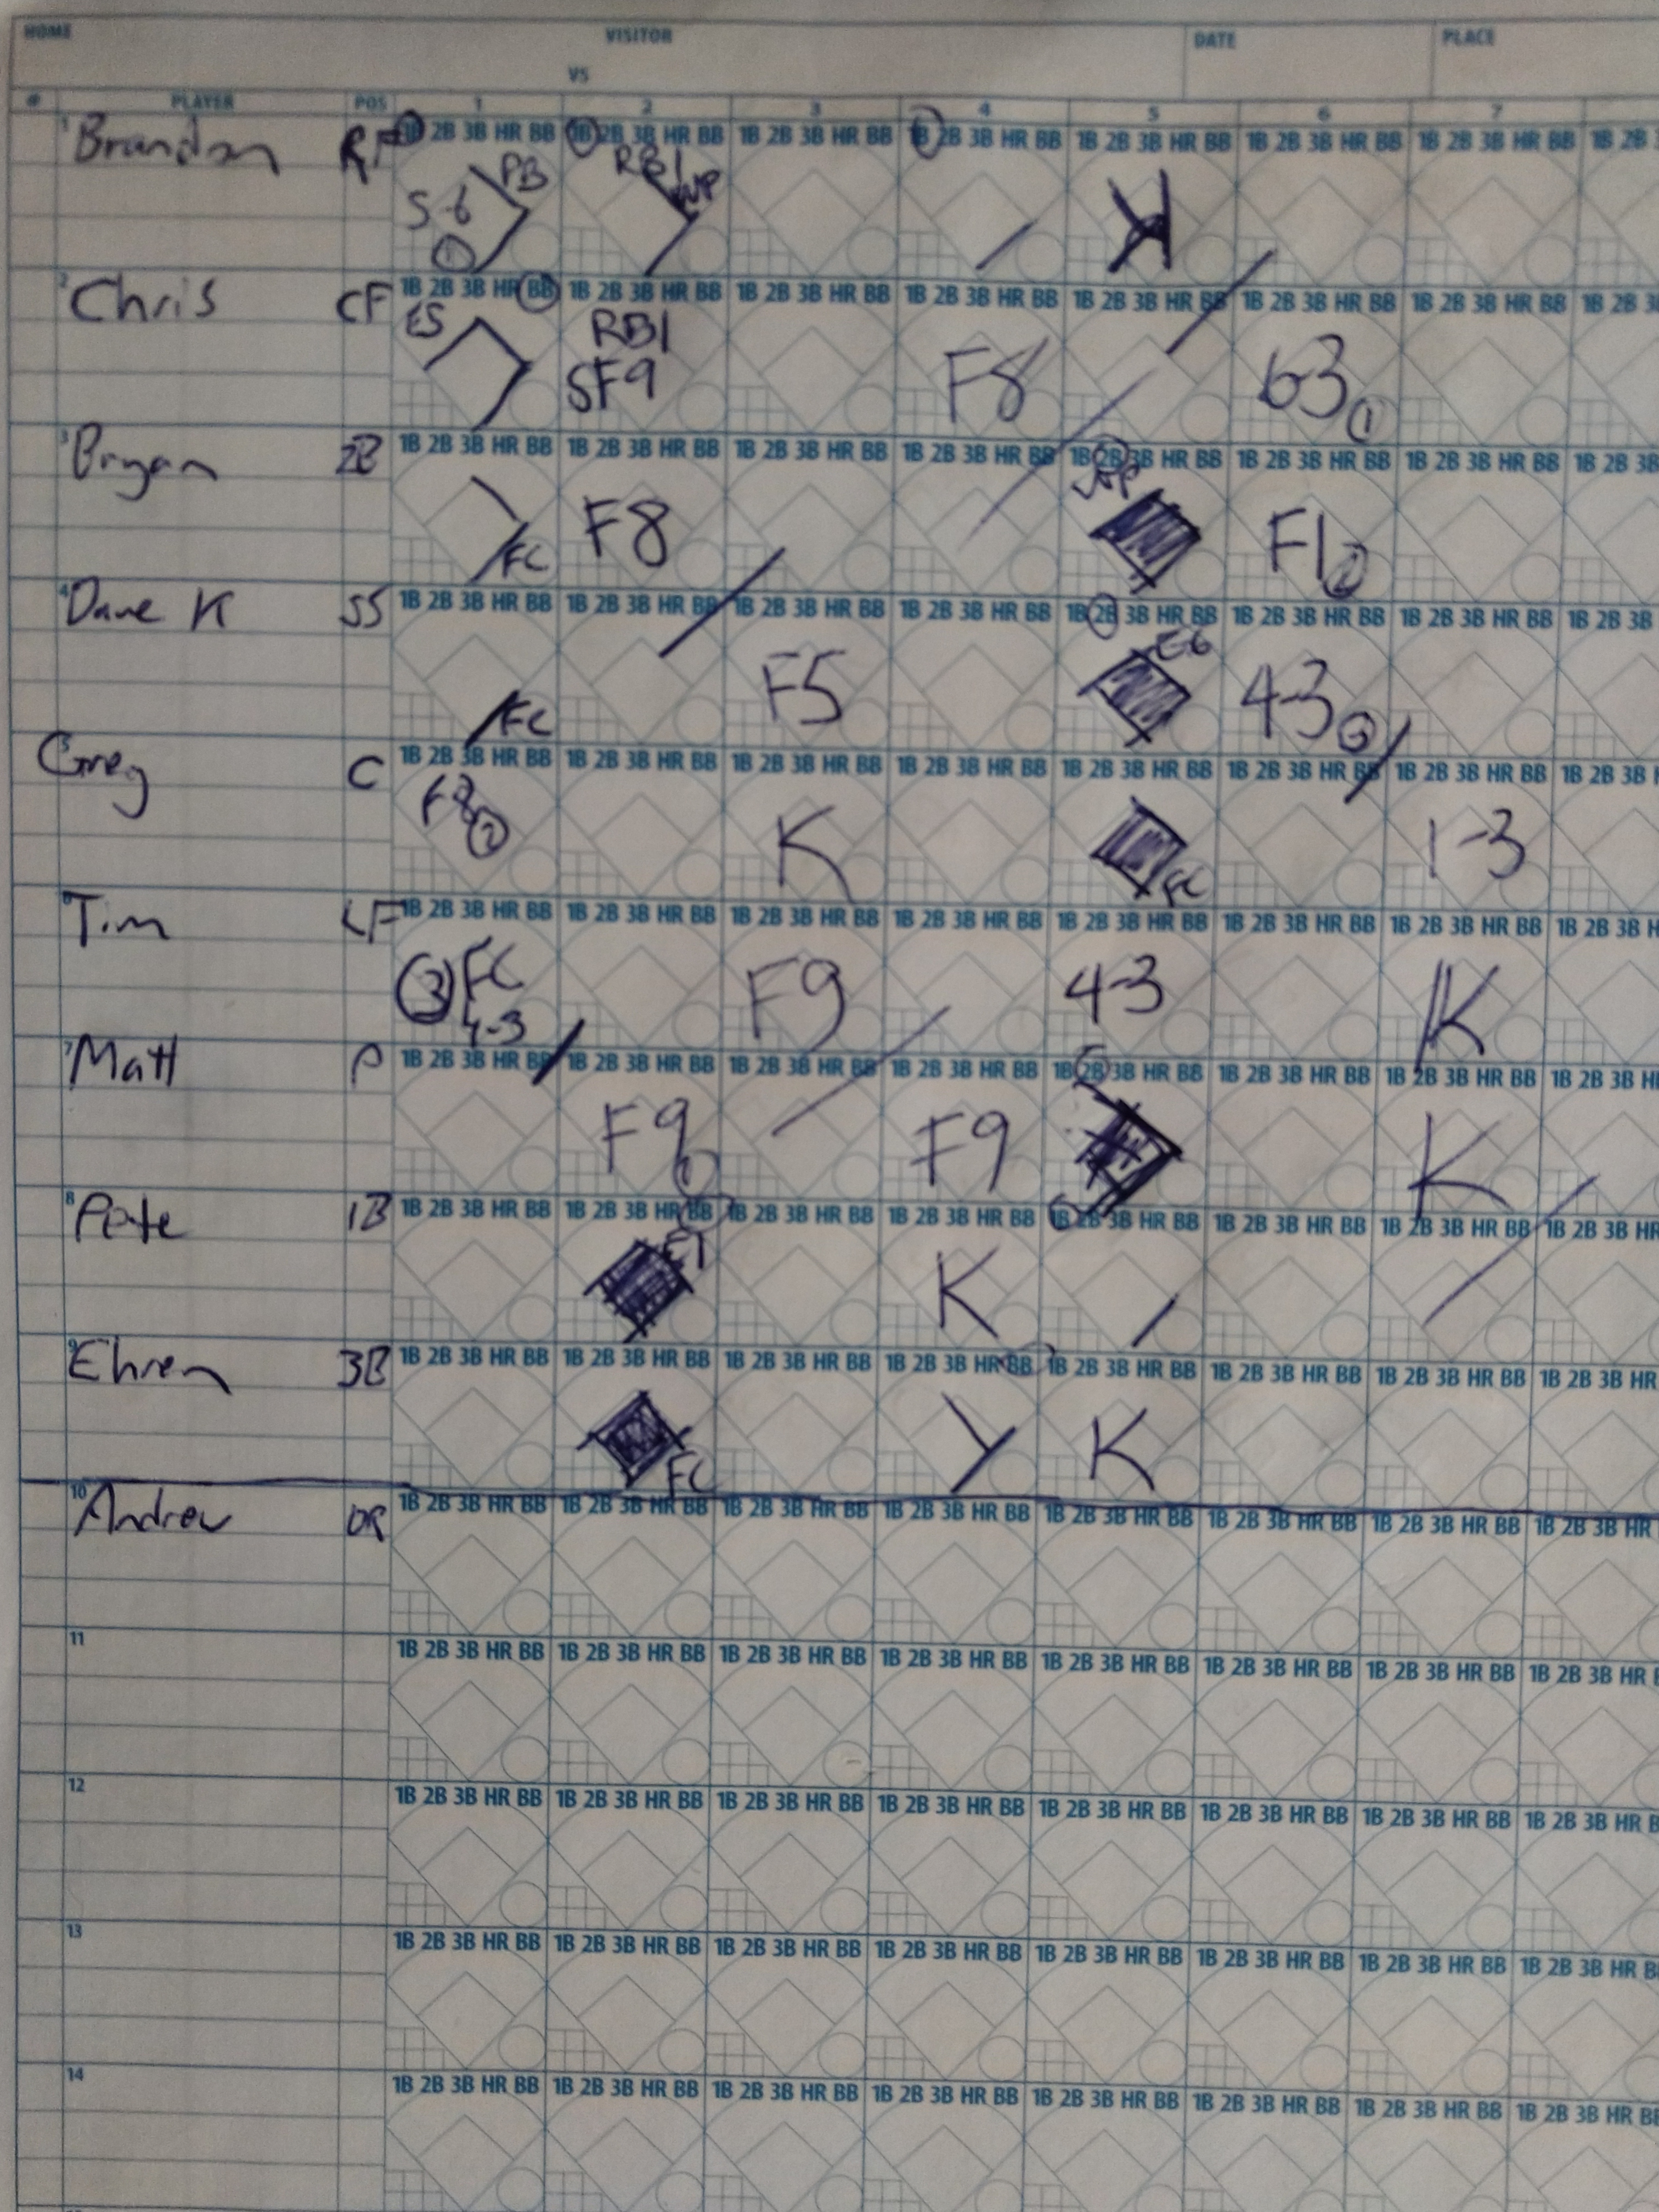 HOME VISITOR DATE PLACE
VS
# PLAYER POS 1 2 3 4 5 6 7
1 Brandon RF 1B 2B 3B HR BB 1B 2B 3B HR BB 1B 2B 3B HR BB 1B 2B 3B HR BB 1B 2B 3B HR BB 1B 2B 3B HR BB 1B 2B 3B HR BB 1B 2B
PB RBI WP
5-6
1
2 Chris CF 1B 2B 3B HR BB 1B 2B 3B HR BB 1B 2B 3B HR BB 1B 2B 3B HR BB 1B 2B 3B HR BB 1B 2B 3B HR BB 1B 2B 3B HR BB 1B 2B 3B
RBI
SF9 F8 63 1
3 Bryan 2B 1B 2B 3B HR BB 1B 2B 3B HR BB 1B 2B 3B HR BB 1B 2B 3B HR BB 1B 2B 3B HR BB 1B 2B 3B HR BB 1B 2B 3B HR BB 1B 2B 3B
FC F8 F1 2
4 Dave K SS 1B 2B 3B HR BB 1B 2B 3B HR BB 1B 2B 3B HR BB 1B 2B 3B HR BB 1B 2B 3B HR BB 1B 2B 3B HR BB 1B 2B 3B HR BB 1B 2B 3B
E6
FC F5 4-3 3
5 Greg C 1B 2B 3B HR BB 1B 2B 3B HR BB 1B 2B 3B HR BB 1B 2B 3B HR BB 1B 2B 3B HR BB 1B 2B 3B HR BB 1B 2B 3B HR BB 1B 2B 3B
F8 2 K FC 1-3
6 Tim LF 1B 2B 3B HR BB 1B 2B 3B HR BB 1B 2B 3B HR BB 1B 2B 3B HR BB 1B 2B 3B HR BB 1B 2B 3B HR BB 1B 2B 3B HR BB 1B 2B 3B
3 FC F9 4-3 K
4-3
7 Matt P 1B 2B 3B HR BB 1B 2B 3B HR BB 1B 2B 3B HR BB 1B 2B 3B HR BB 1B 2B 3B HR BB 1B 2B 3B HR BB 1B 2B 3B HR BB 1B 2B 3B
F9 1 F9 K
8 Pete 1B 1B 2B 3B HR BB 1B 2B 3B HR BB 1B 2B 3B HR BB 1B 2B 3B HR BB 1B 2B 3B HR BB 1B 2B 3B HR BB 1B 2B 3B HR BB 1B 2B 3B HR
E1 K
9 Ehren 3B 1B 2B 3B HR BB 1B 2B 3B HR BB 1B 2B 3B HR BB 1B 2B 3B HR BB 1B 2B 3B HR BB 1B 2B 3B HR BB 1B 2B 3B HR BB 1B 2B 3B HR
FC K
10 Andrew 1B 2B 3B HR BB 1B 2B 3B HR BB 1B 2B 3B HR BB 1B 2B 3B HR BB 1B 2B 3B HR BB 1B 2B 3B HR BB 1B 2B 3B HR BB 1B 2B 3B HR
11 1B 2B 3B HR BB 1B 2B 3B HR BB 1B 2B 3B HR BB 1B 2B 3B HR BB 1B 2B 3B HR BB 1B 2B 3B HR BB 1B 2B 3B HR BB 1B 2B 3B HR
12 1B 2B 3B HR BB 1B 2B 3B HR BB 1B 2B 3B HR BB 1B 2B 3B HR BB 1B 2B 3B HR BB 1B 2B 3B HR BB 1B 2B 3B HR BB 1B 2B 3B HR
13 1B 2B 3B HR BB 1B 2B 3B HR BB 1B 2B 3B HR BB 1B 2B 3B HR BB 1B 2B 3B HR BB 1B 2B 3B HR BB 1B 2B 3B HR BB 1B 2B 3B HR
14 1B 2B 3B HR BB 1B 2B 3B HR BB 1B 2B 3B HR BB 1B 2B 3B HR BB 1B 2B 3B HR BB 1B 2B 3B HR BB 1B 2B 3B HR BB 1B 2B 3B HR